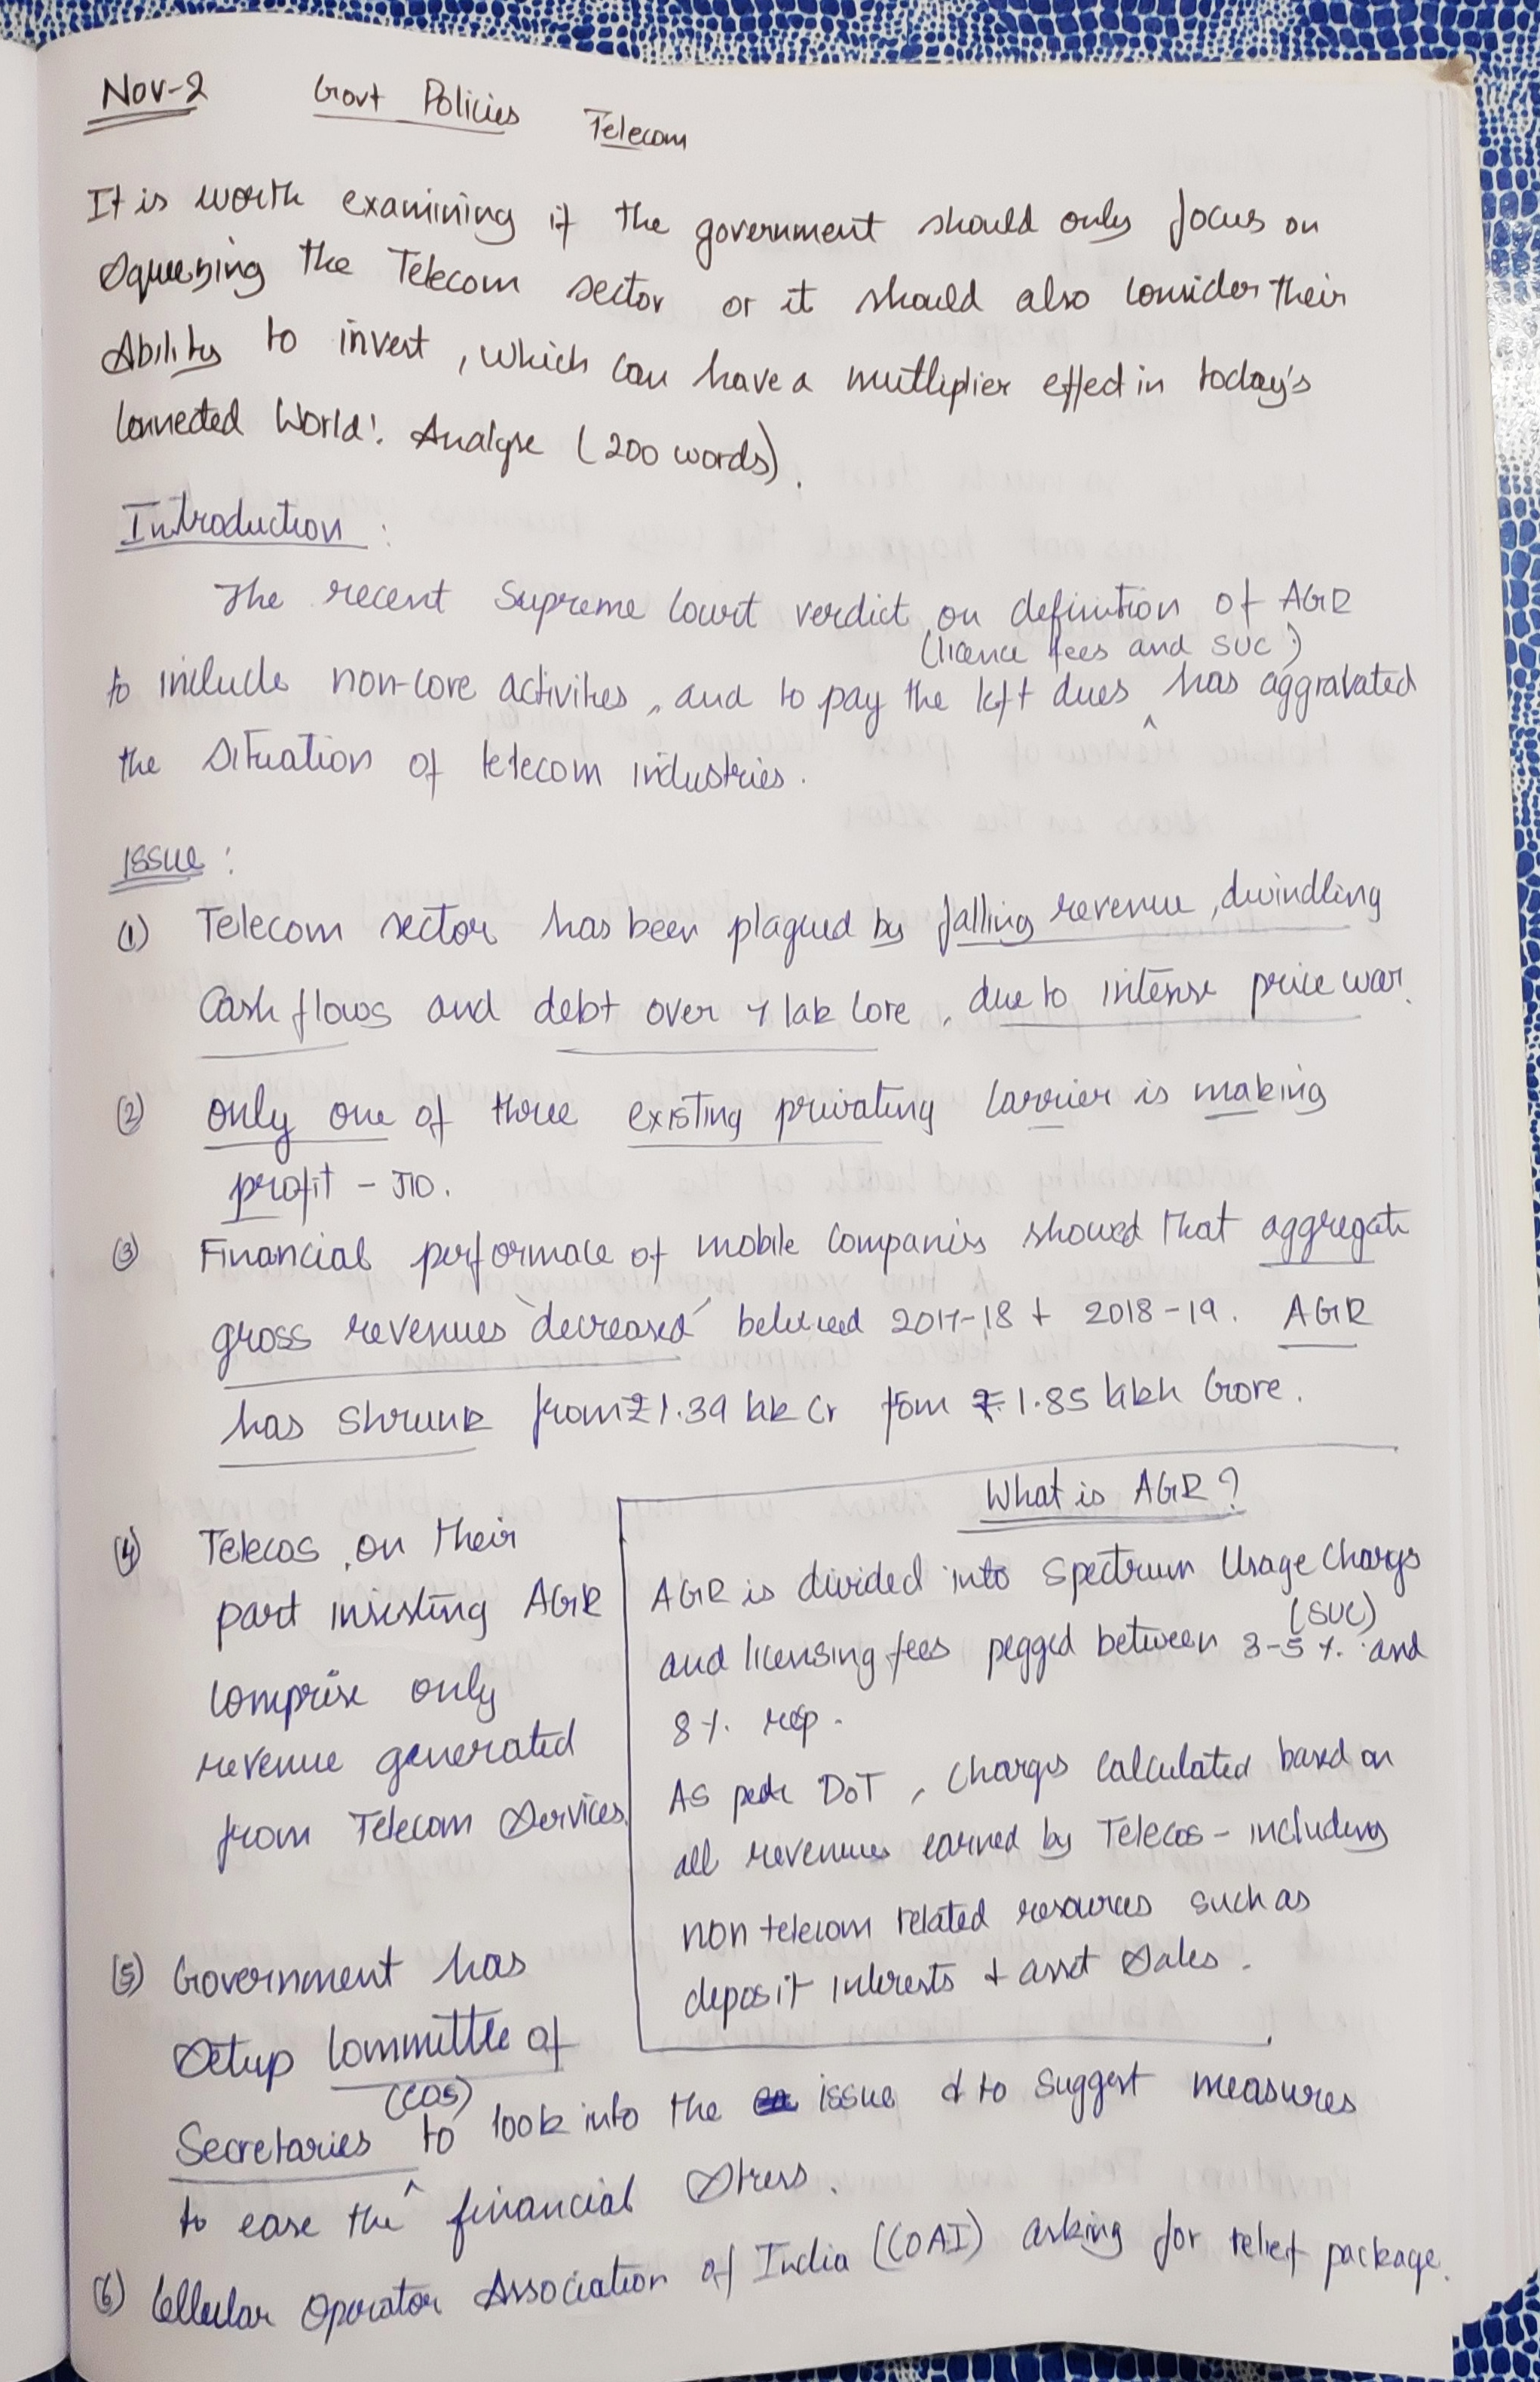 Nov-2 Govt Policies Telecom
It is worth examining if the government should only focus on
squeezing the Telecom sector or it should also consider their
Ability to invest, which can have a mutliplier effect in today's
connected World'. Analyse (200 words).
Introduction :
The recent Supreme Court verdict on definition of AGR
(licence fees and SUC)
to include non-core activities, and to pay the left dues ^ has aggravated
the situation of telecom industries.
Issue :
(1) Telecom sector has been plagued by falling revenue, dwindling
Cash flows and debt over 4 lak Core, due to intense price war.
(2) only one of three existing privating carrier is making
profit - JIO.
(3) Financial performace of mobile companies showed that aggregate
gross revenues 'decreased' between 2017-18 + 2018-19. AGR
has shrunk from ₹1.39 lak Cr fom ₹1.85 lakh Crore.
What is AGR?
(4) Telecos, on their
part insisting AGR
comprise only
revenue generated
from Telecom Services.
AGR is divided into Spectrum Usage Charges
(SUC)
and licensing fees pegged between 3-5 %. and
8 %. resp.
As per DoT, charges calculated based on
all revenues earned by Telecos - including
non telecom related resources such as
deposit interests + asset sales.
(5) Government has
Setup Committee of
(COS)
Secretaries to look into the issue & to suggest measures
to ease the ^ financial stress.
(6) Cellular Operator Association of India (COAI) asking for relief package.